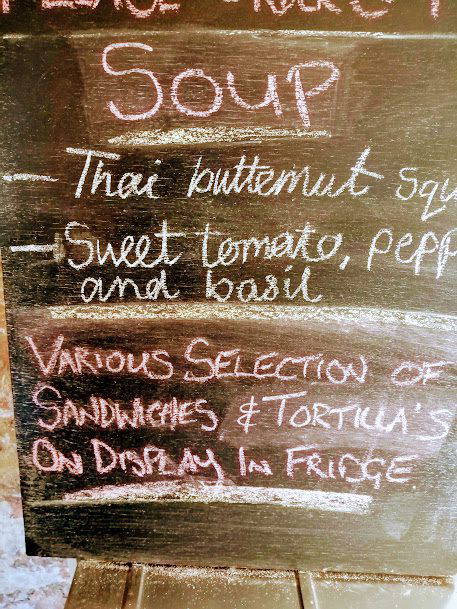 Soup
- Thai butternut squ
- Sweet tomato, pepp
and basil
VARIOUS SELECTION OF
SANDWICHES & TORTILLA'S
ON DISPLAY IN FRIDGE